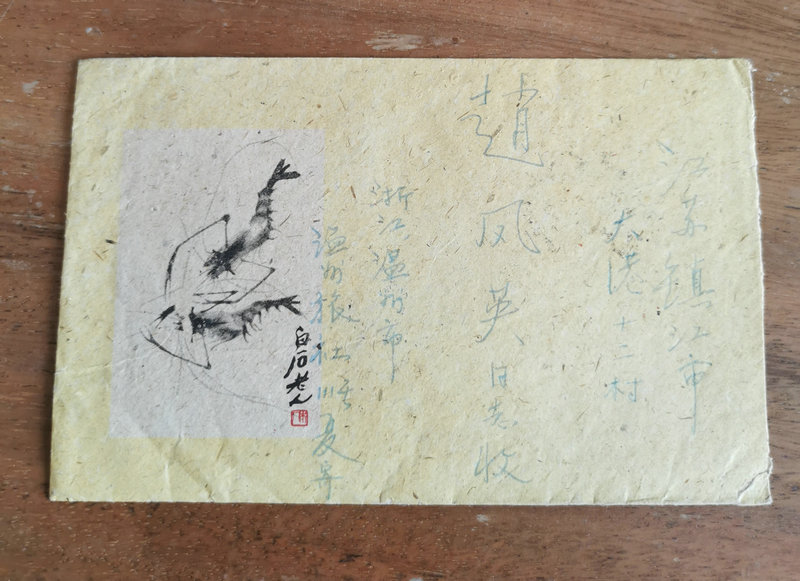 江苏镇江市
大港十三村
趙凤英同志收
浙江温州市
温州旅社顺夏寄
白石老人